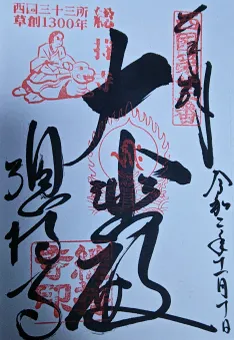 奉拝
令和二年十一月十日
大悲殿
西国三十三所
草創1300年
総持寺